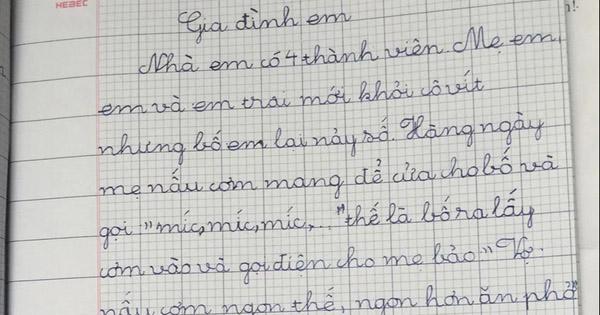 HEBEC
Gia đình em
Nhà em có 4 thành viên. Mẹ em,
em và em trai mới khỏi cô vít
nhưng bố em lại nảy số. Hàng ngày
mẹ nấu cơm mang để cửa cho bố và
gọi "míc, míc, míc,..." thế là bố ra lấy
cơm vào và gọi điện cho mẹ bảo "Vợ
nấu cơm ngon thế, ngon hơn ăn phở"